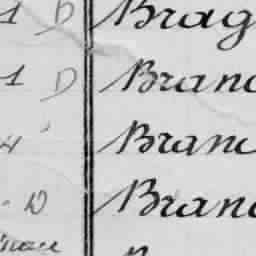 1 D Brag
1 D Branc
4 Branc
D Branc